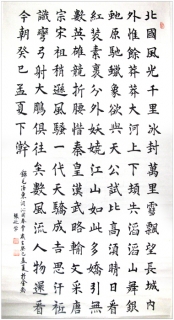 北國風光千里冰封萬里雪飄望長城內
外惟餘莽莽大河上下頓失滔滔山舞銀
原馳蠟象欲與天公試比高須晴日看
紅裝素裹分外妖嬈江山如此多嬌引無
數英雄競折腰惜秦皇漢武略輸文采唐
宗宋祖稍遜風騷一代天驕成吉思汗祇
識彎弓射大鵰俱往矣數風流人物還看
今朝癸巳孟夏下澣
錄毛澤東沁園春雪